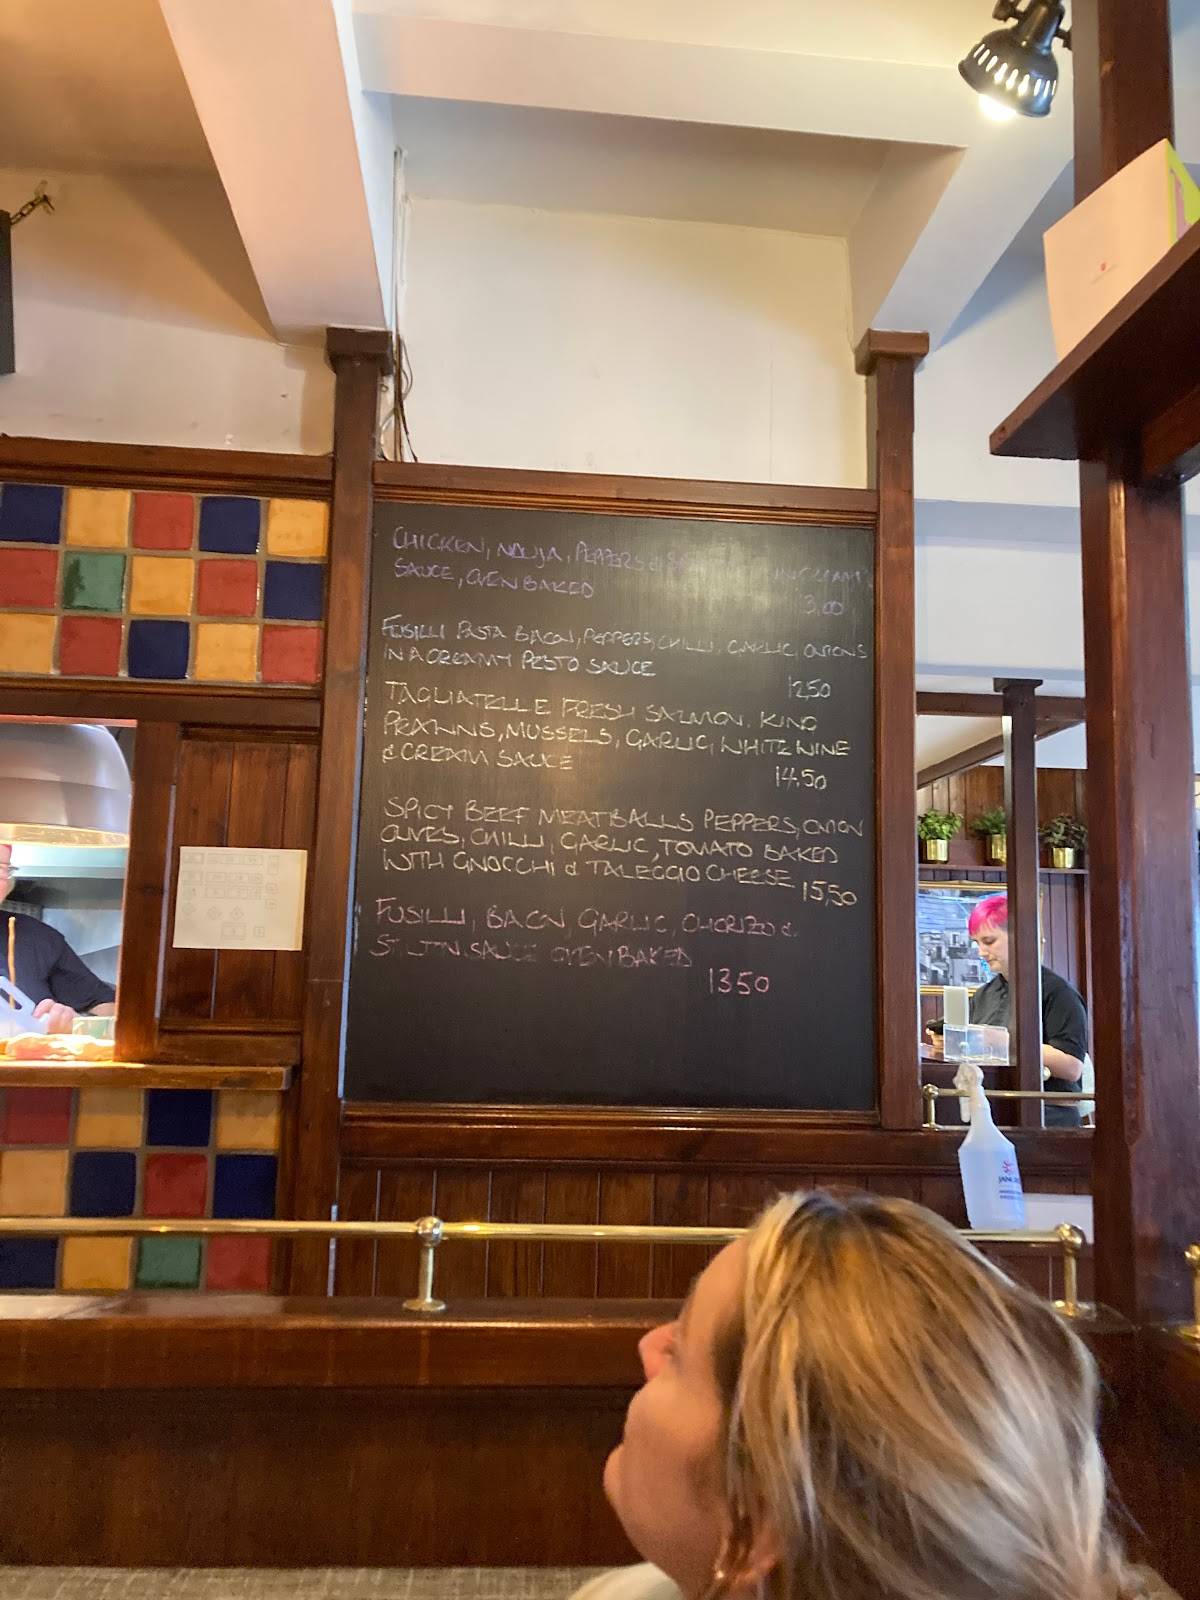 CHICKEN, NDUJA, PEPPERS &
SAUCE, OVEN BAKED
13.00
FUSILLI PASTA BACON, PEPPERS, CHILLI, GARLIC, ONIONS
IN A CREAMY PESTO SAUCE
12,50
TAGLIATELLE FRESH SALMON, KING
PRAWNS, MUSSELS, GARLIC, WHITE WINE
& CREAM SAUCE
14.50
SPICY BEEF MEATBALLS PEPPERS, ONION
OLIVES, CHILLI, GARLIC, TOMATO BAKED
WITH GNOCCHI & TALEGGIO CHEESE
15,50
FUSILLI, BACON, GARLIC, CHORIZO &
SAUCE OVEN BAKED
13 50